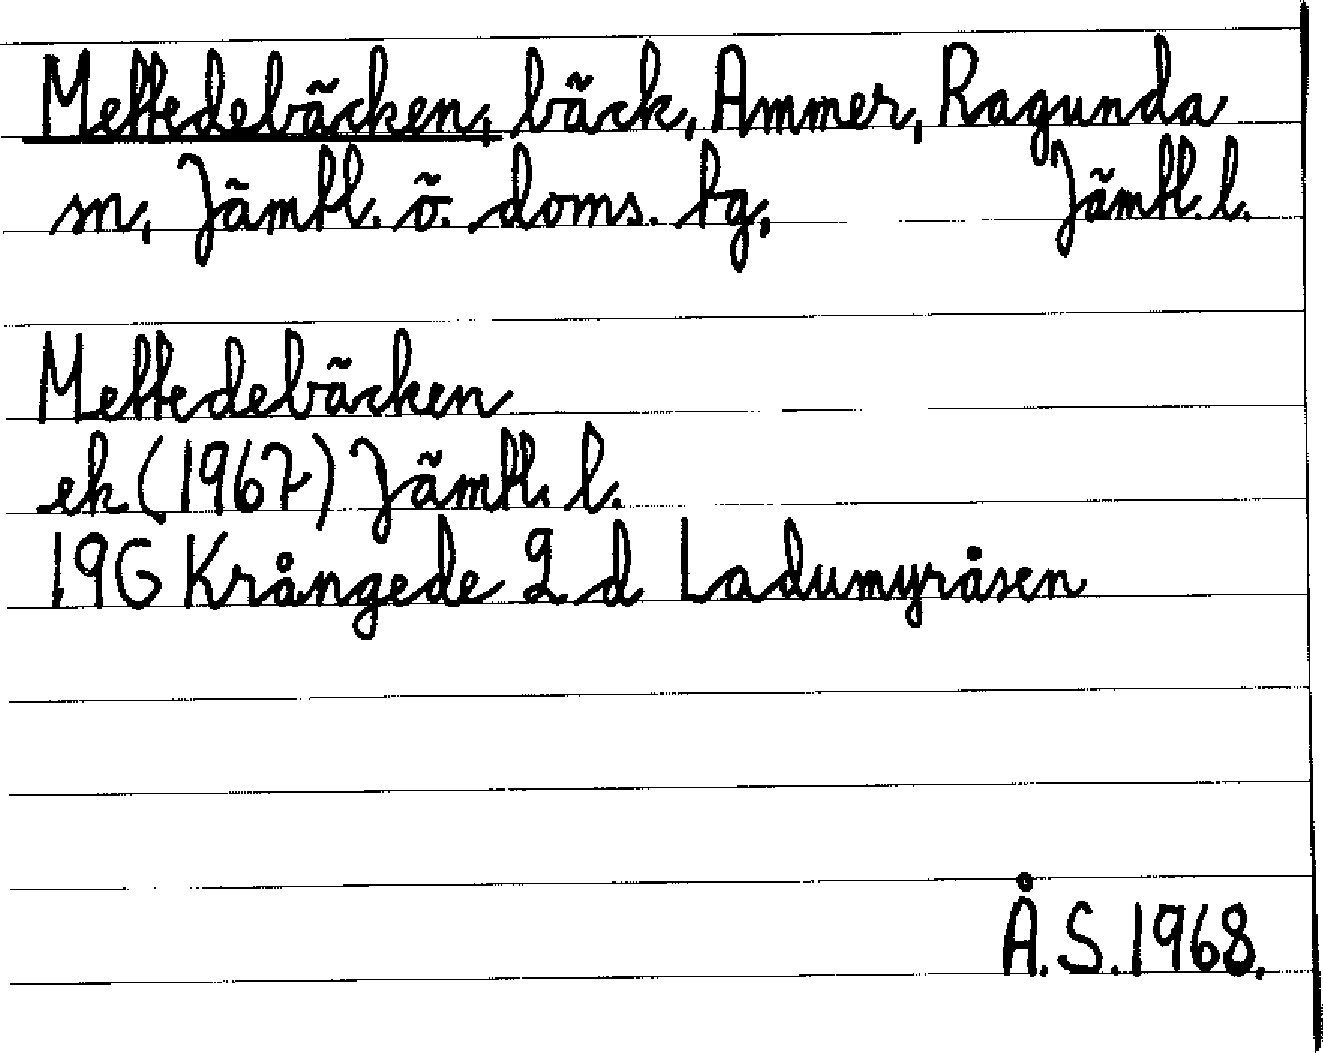 Meltedebäcken, bäck, Ammer, Ragunda
sn, Jämtl. ö. doms. tg, Jämtl. l.
Meltedebäcken
ek (1967) Jämtl. l.
19G Krångede 2 d Ladumyråsen
Å.S. 1968.